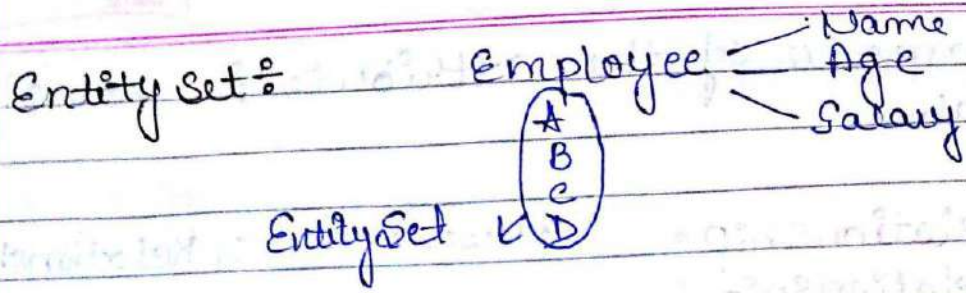 Entity Set :
Employee
Name
Age
Salary
A
B
C
D
Entity Set